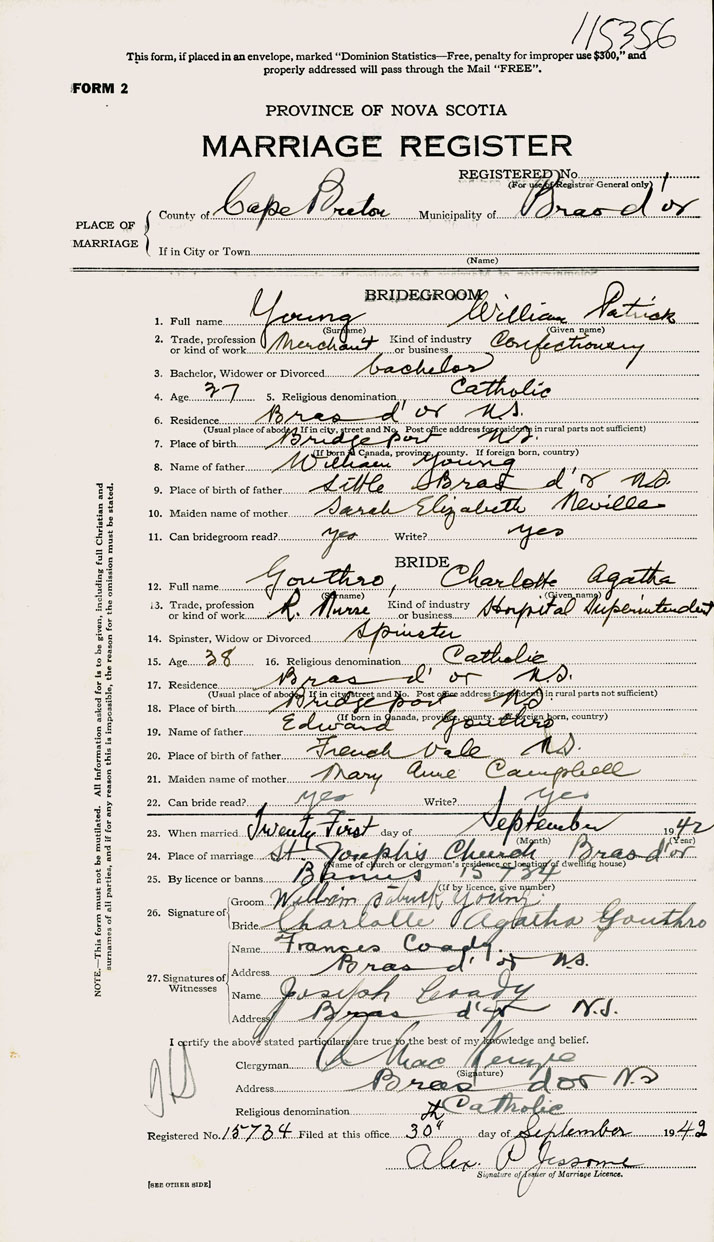 115356
This form, if placed in an envelope, marked "Dominion Statistics—Free, penalty for improper use $300," and
properly addressed will pass through the Mail "FREE".
FORM 2
PROVINCE OF NOVA SCOTIA
MARRIAGE REGISTER
REGISTERED No.
(For use of Registrar General only)
PLACE OF MARRIAGE
County of Cape Breton Municipality of Bras d'or
If in City or Town
(Name)
BRIDEGROOM
1. Full name Young William Patrick
(Surname) (Given name)
2. Trade, profession or kind of work Merchant Kind of industry or business Confectionary
3. Bachelor, Widower or Divorced bachelor
4. Age 37 5. Religious denomination Catholic
6. Residence Bras d'or N.S.
(Usual place of abode. If in city, street and No. Post office address for residents in rural parts not sufficient)
7. Place of birth Bridgeport N.S.
(If born in Canada, province, county. If foreign born, country)
8. Name of father William Young
9. Place of birth of father Little Bras d'or N.S.
10. Maiden name of mother Sarah Elizabeth Neville
11. Can bridegroom read? yes Write? yes
BRIDE
12. Full name Gouthro, Charlotte Agatha
(Surname) (Given name)
13. Trade, profession or kind of work R. Nurse Kind of industry or business Hospital Superintendent
14. Spinster, Widow or Divorced Spinster
15. Age 38 16. Religious denomination Catholic
17. Residence Bras d'or N.S.
(Usual place of abode. If in city, street and No. Post office address for residents in rural parts not sufficient)
18. Place of birth Bridgeport N.S.
(If born in Canada, province, county. If foreign born, country)
19. Name of father Edward Gouthro
20. Place of birth of father French Vale N.S.
21. Maiden name of mother Mary Anne Campbell
22. Can bride read? yes Write? yes
23. When married Twenty First day of September 1942
(Month) (Year)
24. Place of marriage St. Joseph's Church Bras d'or
(Name of church or clergyman's residence or location of dwelling house)
25. By licence or banns Banns 15734
(If by licence, give number)
26. Signature of
Groom William Patrick Young
Bride Charlotte Agatha Gouthro
27. Signatures of Witnesses
Name Frances Coady
Address Bras d'or N.S.
Name Joseph Coady
Address Bras d'or N.S.
I certify the above stated particulars are true to the best of my knowledge and belief.
Clergyman Mac Kenzie
(Signature)
Address Bras d'or N.S
Religious denomination Catholic
Registered No. 15734 Filed at this office 30th day of September 1942
Alex. P. Jessome
Signature of Issuer of Marriage Licence.
[SEE OTHER SIDE]
NOTE.—This form must not be mutilated. All information asked for is to be given, including full Christian and
surnames of all parties, and if for any reason this is impossible, the reason for the omission must be stated.